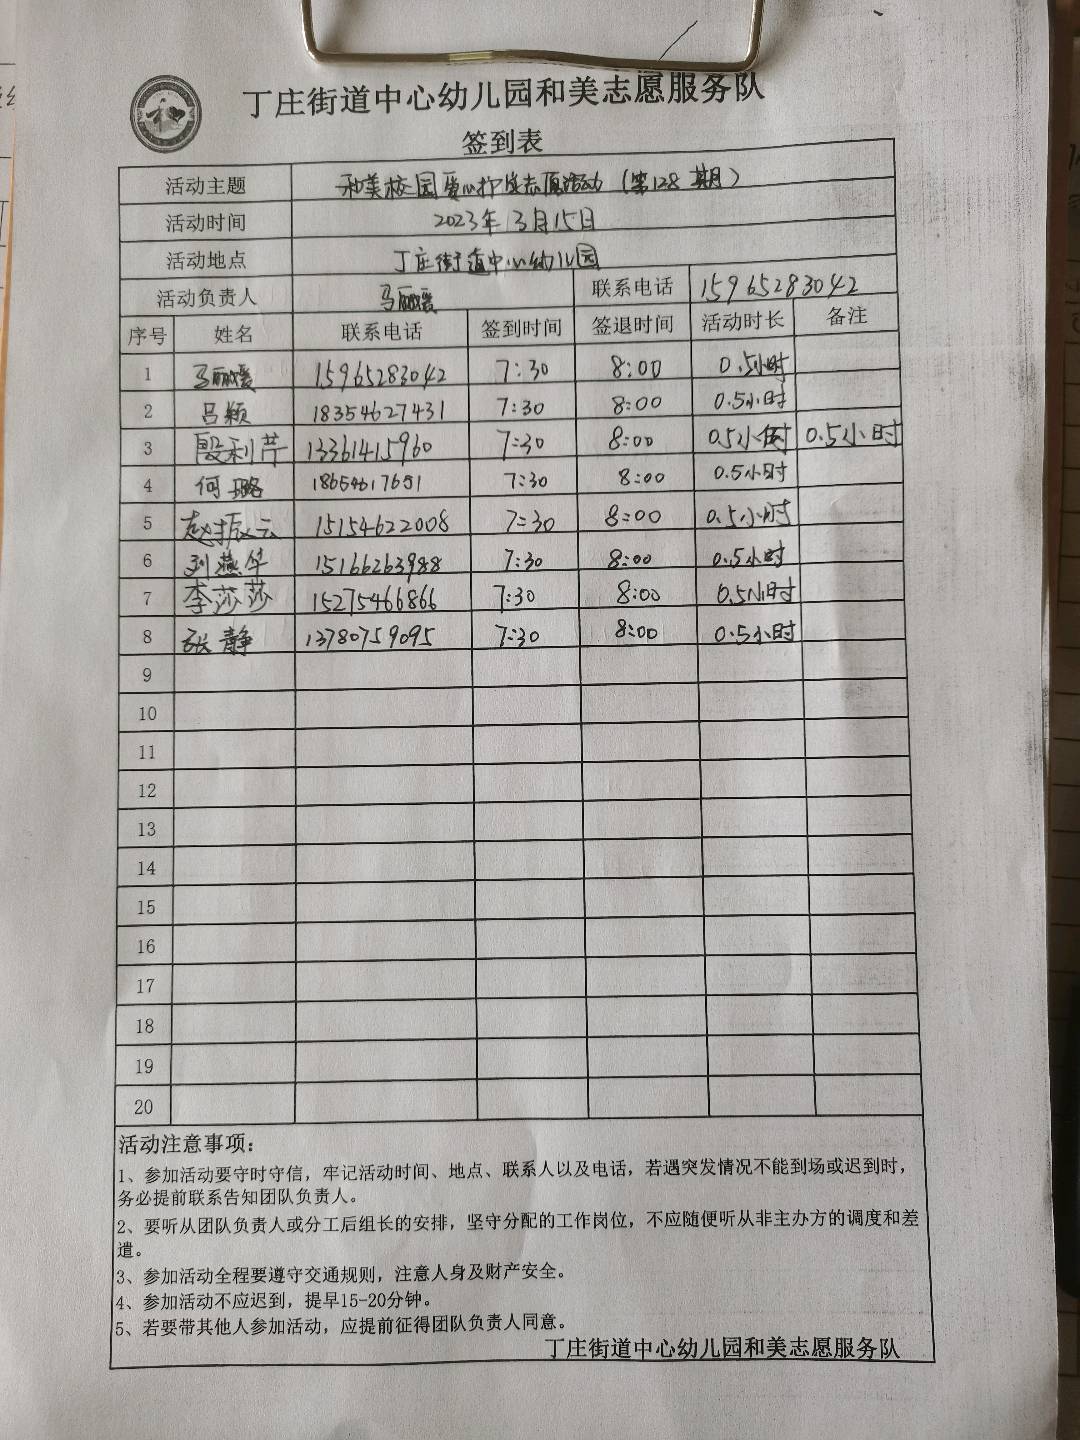 丁庄街道中心幼儿园和美志愿服务队
签到表
活动主题 和美校园爱心护学志愿活动（第128期）
活动时间 2023年3月15日
活动地点 丁庄街道中心幼儿园
活动负责人 马丽媛 联系电话 15965283042
序号 姓名 联系电话 签到时间 签退时间 活动时长 备注
1 马丽媛 15965283042 7:30 8:00 0.5小时
2 吕颖 18354627431 7:30 8:00 0.5小时
3 殷利芹 13361415960 7:30 8:00 0.5小时 0.5小时
4 何璐 18654617651 7:30 8:00 0.5小时
5 赵振云 15154622008 7:30 8:00 0.5小时
6 刘燕华 15166263988 7:30 8:00 0.5小时
7 李莎莎 15275466866 7:30 8:00 0.5小时
8 张静 13780759095 7:30 8:00 0.5小时
9
10
11
12
13
14
15
16
17
18
19
20
活动注意事项：
1、参加活动要守时守信，牢记活动时间、地点、联系人以及电话，若遇突发情况不能到场或迟到时，
务必提前联系告知团队负责人。
2、要听从团队负责人或分工后组长的安排，坚守分配的工作岗位，不应随便听从非主办方的调度和差
遣。
3、参加活动全程要遵守交通规则，注意人身及财产安全。
4、参加活动不应迟到，提早15-20分钟。
5、若要带其他人参加活动，应提前征得团队负责人同意。
丁庄街道中心幼儿园和美志愿服务队